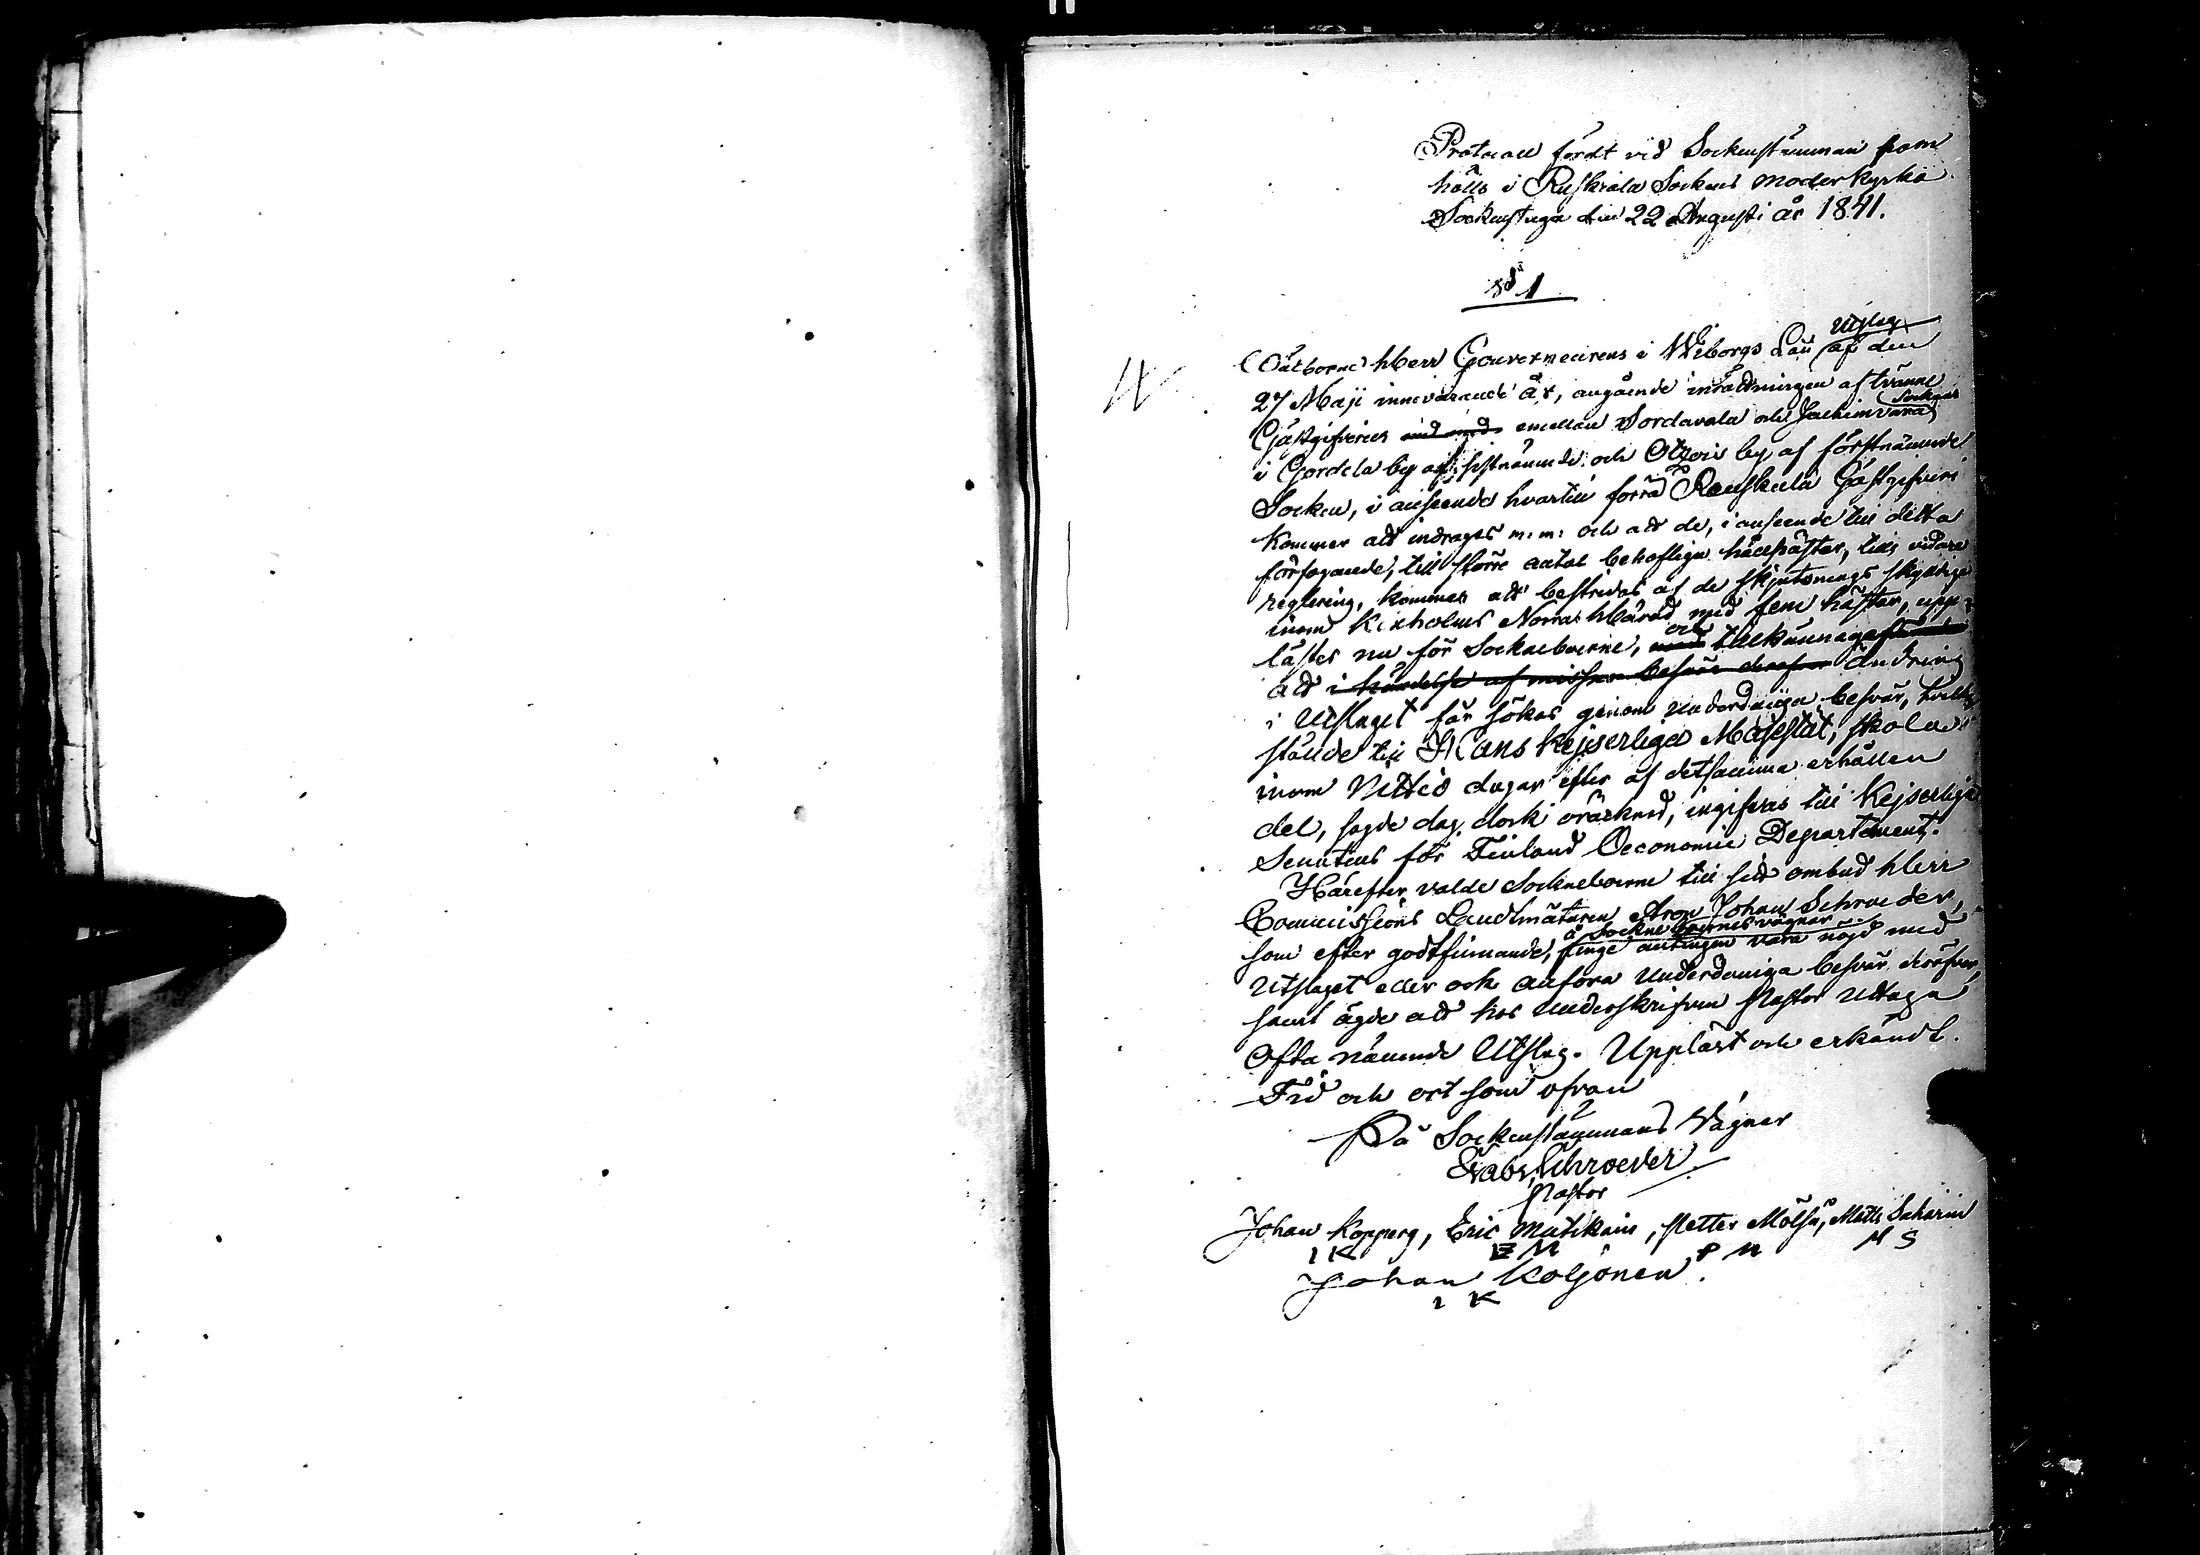 Protocoll fördt vid Sockenstämman som
hålls i Ruskiala Sockens moderkyrko
Sockenstuga den 22 Augusti år 1841.
§ 1
Välborne Herr Gouverneurens i Wiborgs Län Utslag af den
27 Maji innevarande år, angående inrättningen af tvänne
Gästgifverier emellan Sordavala och Jackimvara Socknar
i Gordela by af sistnämnde och Otzois by af förstnämnde
Socken, i anseende hvartill förra Rauskula Gästgifveri
kommer att indragas m. m. och att de, i anseende till detta
förfogande, till större antal behöflige hållhästar, tills vidare
reglering, kommer att bestridas af de skjutsnings skyldige
inom Kexholms Norra Härad med fem hästar, upp-
lästes nu för Sockneboerne, och tillkännagafs
att i händelse af missnöje besvär deröfver ändring
i Utslaget får sökas genom underdåniga besvär, hvilka
stälde till Hans Kejserliga Majestät, skola
inom Nittio dagar efter af detsamma erhållen
del, sagde dag dock oräknad, ingifvas till Kejserliga
Senatens för Finland Oeconomie Departement.
Härefter valde Sockneboerne till sitt ombud Herr
Commissions Landtmätaren Aron Johan Schroeder,
som efter godtfinnande, å Sockneboernes vägnar finge antingen vara nöjd med
Utslaget eller ock anföra underdåniga besvär deröfver,
samt ägde att hos underskrifven Pastor uttaga
Ofta nämnde Utslag. Uppläst och erkändt.
Tid och ort som ofvan
På Sockenstämmans Vägnar
Gabr. Schroeder
Pastor
Johan Kopperg, Eric Matikain, Petter Mölsä, Matts Saharin
I K E M P M M S
Johan Koljonen.
I K